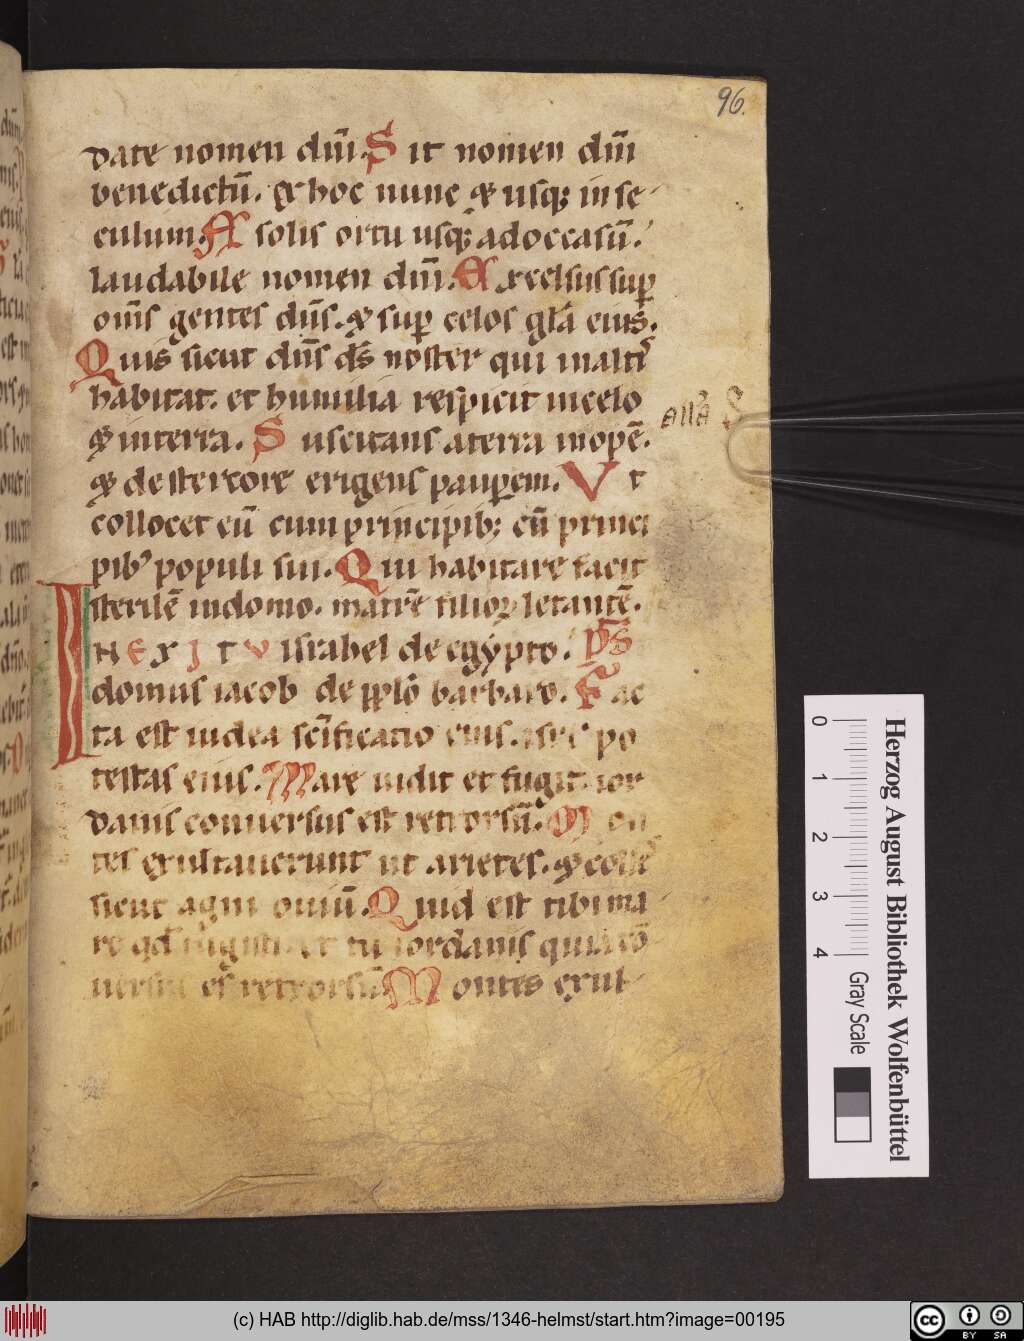 96
date nomen dm̄i. Sit nomen dm̄i
benedictū. Ex hoc nunc & usq; in se-
culum. A solis ortu usq; ad occasū.
laudabile nomen dm̄i. Excelsus sup
om̄s gentes dn̄s. & sup celos glā eius.
Quis sicut dn̄s ds̄ noster qui in alti
habitat. et humilia respicit in celo
& in terra. Suscitans a terra inopē.
& de stercore erigens paup̄em. Ut
collocet eū cum principib; cū princi
pib' populi sui. Qui habitare facit
sterilē in domo. matrē filioꝝ letantē.
IN EXITU israhel de egypto. Ps̄
domus iacob de pplō barbaro. Fac
ta est iudea scīficatio eius. isrl po
testas eius. Mare uidit et fugit. ior
danis conuersus est retrorsū. Mon
tes exultauerunt ut arietes. & colle
sicut agni ouiū. Quid est tibi ma
re qd fugisti. et tu iordanis quia cō
uersus es retrorsū. Montes exul-
allā S
0 1 2 3 4
Gray Scale
Herzog August Bibliothek Wolfenbüttel
(c) HAB http://diglib.hab.de/mss/1346-helmst/start.htm?image=00195
cc BY SA